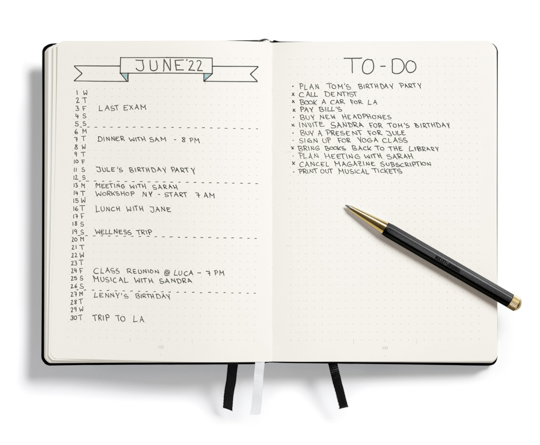 JUNE '22
1 W
2 T
3 F LAST EXAM
4 S
5 S
6 M
7 T DINNER WITH SAM - 8 PM
8 W
9 T
10 F
11 S JULE'S BIRTHDAY PARTY
12 S
13 M MEETING WITH SARAH
14 T WORKSHOP NY - START 7 AM
15 W
16 T LUNCH WITH JANE
17 F
18 S
19 S WELLNESS TRIP
20 M
21 T
22 W
23 T
24 F CLASS REUNION @ LUCA - 7 PM
25 S MUSICAL WITH SANDRA
26 S
27 M LENNY'S BIRTHDAY
28 T
29 W
30 T TRIP TO L.A.
TO-DO
· PLAN TOM'S BIRTHDAY PARTY
× CALL DENTIST
× BOOK A CAR FOR LA
× PAY BILL'S
· BUY NEW HEADPHONES
× INVITE SANDRA FOR TOM'S BIRTHDAY
· BUY A PRESENT FOR JULE
· SIGN UP FOR YOGA CLASS
× BRING BOOKS BACK TO THE LIBRARY
· PLAN MEETING WITH SARAH
× CANCEL MAGAZINE SUBSCRIPTION
· PRINT OUT MUSICAL TICKETS